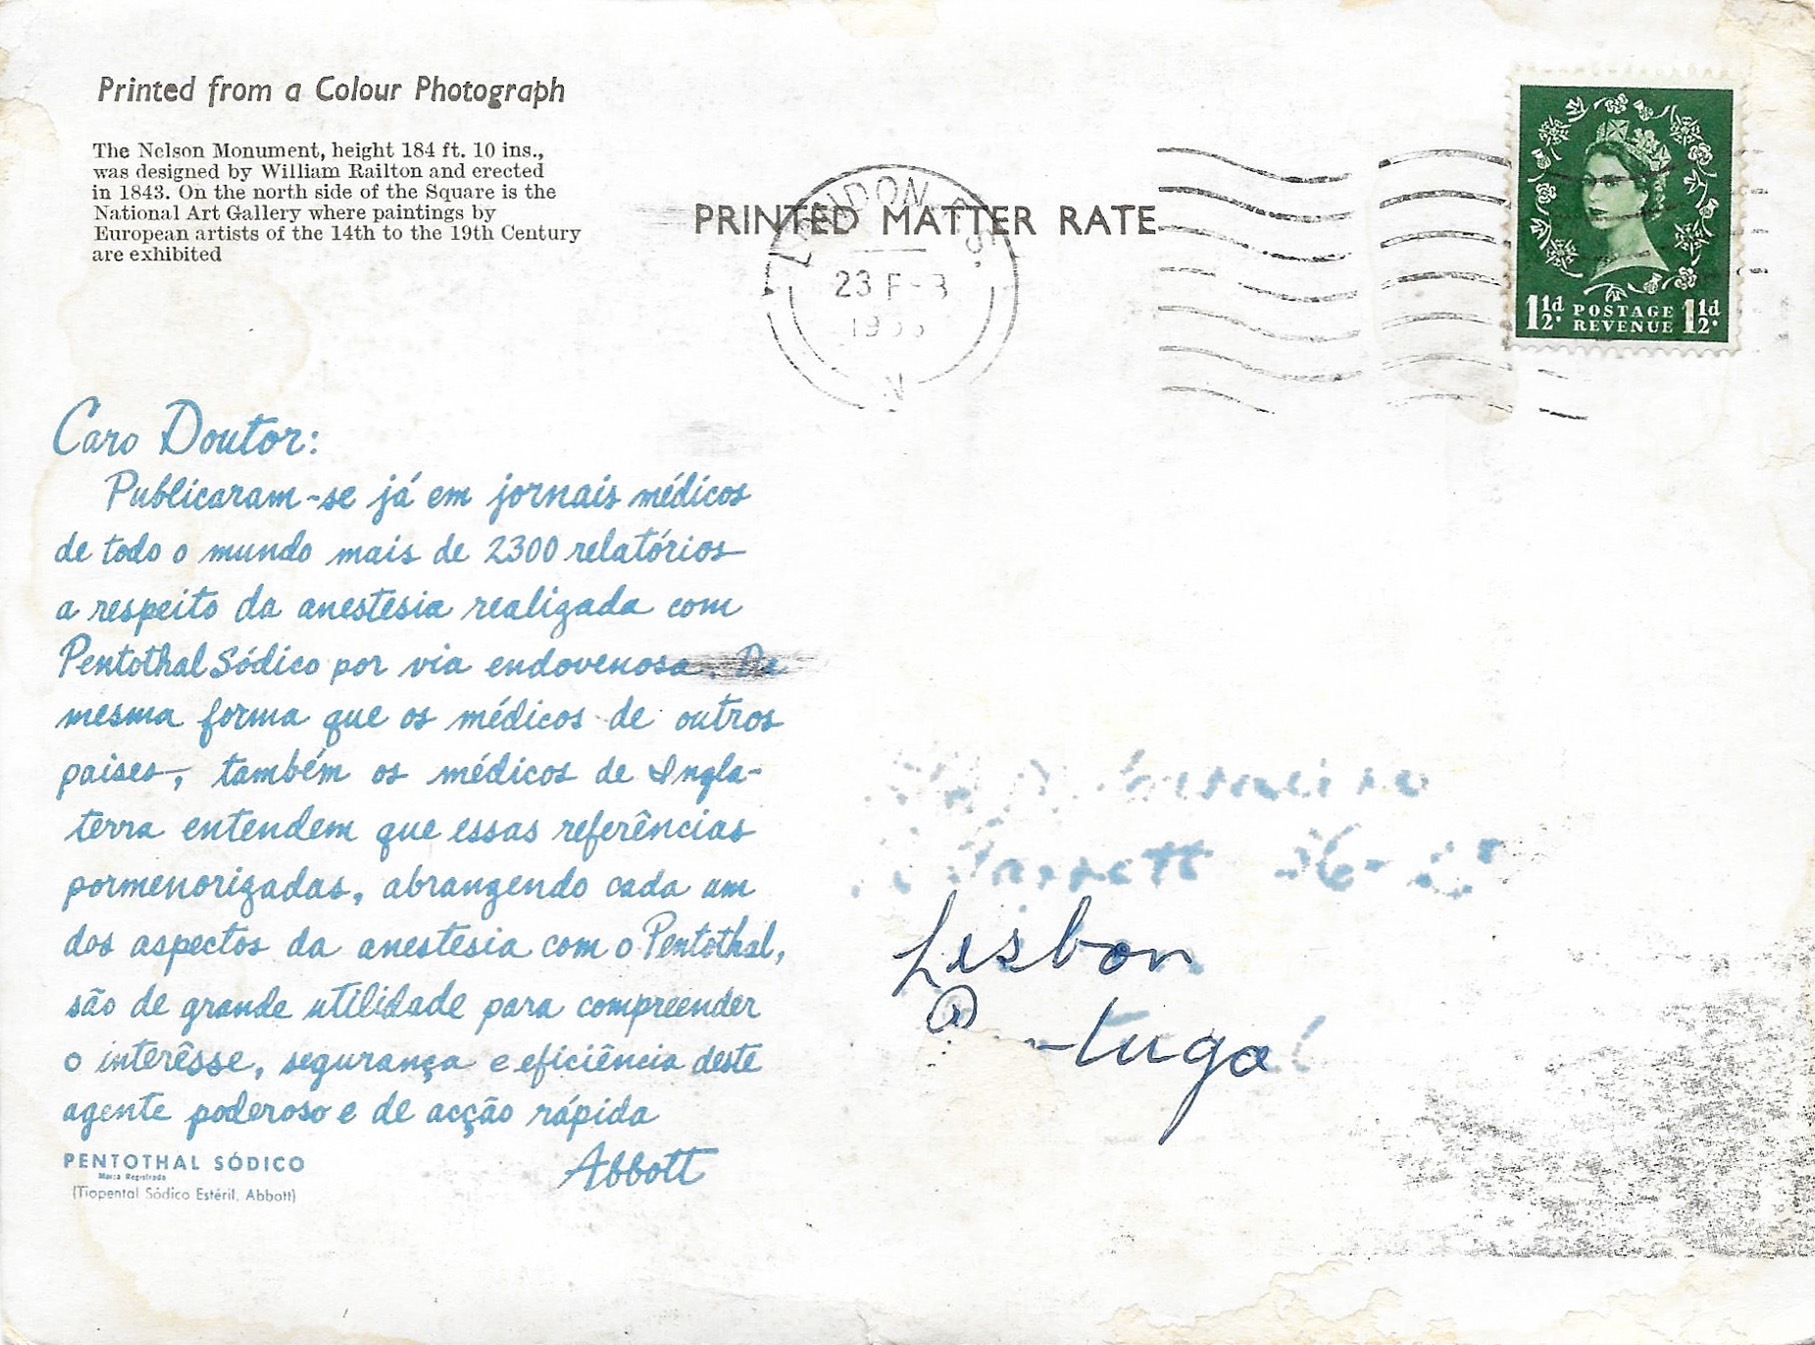 Printed from a Colour Photograph
The Nelson Monument, height 184 ft. 10 ins.,
was designed by William Railton and erected
in 1843. On the north side of the Square is the
National Art Gallery where paintings by
European artists of the 14th to the 19th Century
are exhibited
PRINTED MATTER RATE
LONDON
23 F
N
1½d. POSTAGE REVENUE 1½d.
Caro Doutor:
Publicaram-se já em jornais médicos
de todo o mundo mais de 2300 relatórios
a respeito da anestesia realizada com
Pentothal Sódico por via endovenosa. Da
mesma forma que os médicos de outros
paises, também os médicos de Ingla-
terra entendem que essas referências
pormenorizadas, abrangendo cada um
dos aspectos da anestesia com o Pentothal,
são de grande utilidade para compreender
o interêsse, segurança e eficiência deste
agente poderoso e de acção rápida
Abbott
PENTOTHAL SÓDICO
Marca Registrada
(Tiopental Sódico Estéril, Abbott)
Lisbon
Portugal